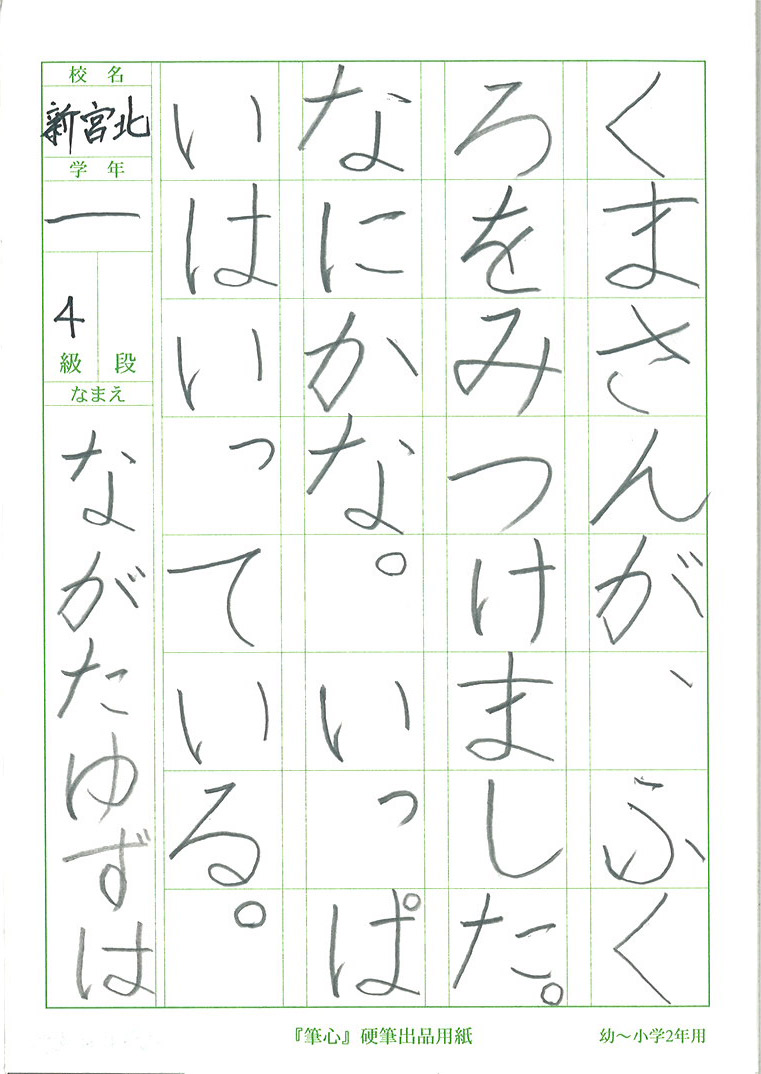 くまさんが、ふく
ろをみつけました。
なにかな。いっぱ
いはいっている。
校名
新宮北
学年
一
4
級段
なまえ
ながたゆずは
『筆心』硬筆出品用紙
幼～小学2年用